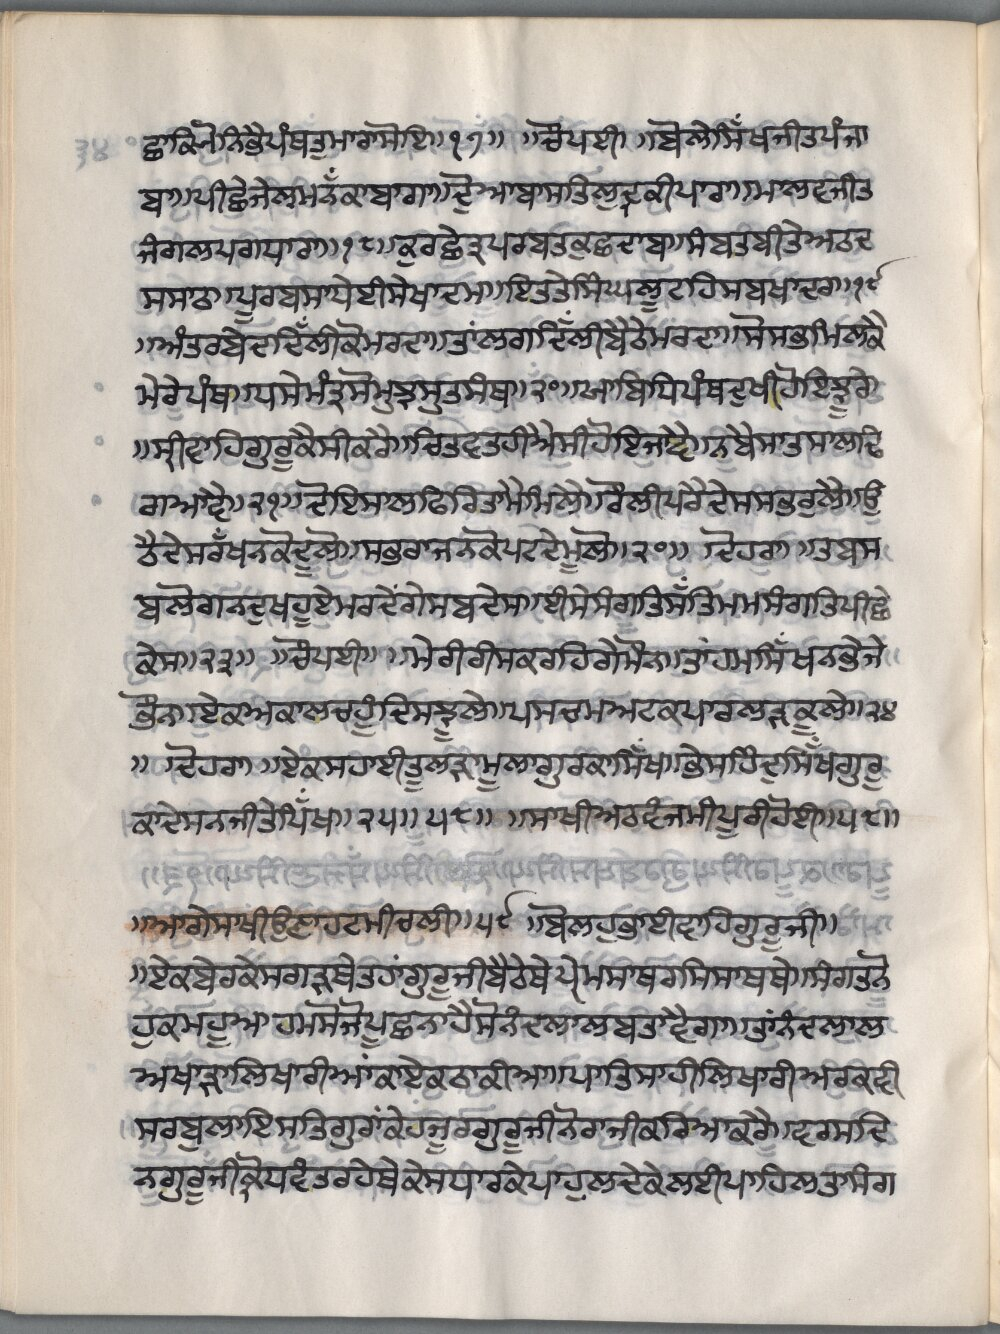 ਛਾਕਿਨੋਨਿਭੈਪੰਥਤੁਮਾਰਾਸੋਇ॥੧੭॥ ॥ਚੌਪਈ ॥ਬੋਲੇਸਿੰਘਜੀਤਪੰਜਾ
ਬਾ॥ਪੀਛੇਜੇਲਮਨੌਕਾਬਾਗਾ॥ਦੋਆਬਾਸਤਿਲੁਦ੍ਰਕੀਪਾਰਾ॥ਮਾਲਵਜੀਤ
ਜੰਗਲਪਗਧਾਰਾ॥੧੮॥ਕੁਰਛੇਤ੍ਰਪਰਬਤਕੁਛਦਾਬਾ॥ਸੰਬਤਬੀਤੇਅਠਦ
ਸਸਾਠਾ॥ਪੂਰਬਸਾਧੇਈਸੇਖਾਦਸਾ॥ਇਤਤੇਸਿੰਘਲੂਟਹਿਸਬਖਾਦਰਾ॥੧੯
॥ਅੰਤਰਬੇਦਦਿੱਲੀਕੋਮਰਦਾ॥ਤਾਂਲਗਦਿੱਲੀਬੈਠੇਮਰਦਾ॥ਸੋਸਭਮਿਲਕੈ
ਮੇਰੇਪੰਥਾ॥ਧਸੇਮੰਤ੍ਰਸੋਮੁਝਸੁਤਸੰਥਾ॥੨੦॥ਯਾਬਿਧਿਪੰਥਦੁਖੀਹੋਇਝੂਰੇ
॥ਸ੍ਰੀਵਾਹਿਗੁਰੂਕੈਸੀਕਰੈ॥ਚਿਤਵਤਹੀਐਸੀਹੋਇਜਾਵੈ॥ਨਬੈਸਾਤਸਾਲਢਿ
ਗਆਵੈ॥੨੧॥ਦੋਇਸਾਲਫਿਰਿਤਾਮੈਮਿਲੈ॥ਰੌਲੀਪਰੈਦੇਸਸਭਰੁਲੈ॥ਉ
ਠੈਦੇਸਰੱਖਨਕੋਦੂਲੋ॥ਸਭਰਾਜਨਕੋਪਟਦੇਮੂਲੋ॥੨੦॥ ॥ਦੋਹਰਾ ॥ਤਬਸ
ਬਲੋਗਨਦੁਖਹੂਏਮਰਦੇਂਗੇਸਬਦੇਸਾ॥ਈਸੇਸੰਗੁਤਿਸੱਤਿਮਮਸੰਗਤਿਪੀਛੇ
ਕੇਸਾ॥੨੩॥ ॥ਚੌਪਈ॥ ॥ਮੇਰੀਰੀਸਕਰਹਿਗੇਸੈਨਾ॥ਤਾਂਹਮਸਿੱਖਨਭੇਜੇ
ਭੈਨਾ॥ਏਕਅਕਾਲਚਹੂੰਦਿਸਝੂਲੇ॥ਪਸਚਮਅਟਕਪਾਰਲੜਕੂਲੇ॥੨੪
॥ ॥ਦੋਹਰਾ ॥ਏਕੰਸਹਾਈਤੂਲੜਾਮੂਲਾਗੁਰਕਾਸਿੱਖ॥ਭੇਸਹਿੰਦੂਸਿੱਖਗੁਰੂ
ਕਾਦੇਸਨਜੀਤੇਪਿੱਖ॥੨੫॥੫੮॥ ॥ਸਾਖੀਅਠਵੰਜਮੀਪੂਰੀਹੋਈ॥੫੮॥
॥ਆਗੇਸਾਖੀਉਣਾਹਟਮੀਚਲੀ॥੫੯ ॥ਬੋਲਹੁਭਾਈਵਾਹਿਗੁਰੂਜੀ॥
॥ਏਕਬੇਰਕੇਸਗੜਖੇਤਹਾਂਗੁਰੂਜੀਬੈਠੇਥੇਪ੍ਰੇਮਸਾਖਰਸਿਸਾਖਥੇ॥ਸੰਗਤਨੋ
ਹੁਕਮਹੂਆਹਮਸੋਜੋਪੂਛਨਾਹੈਸੋਨੰਦਲਾਲਬਤਾਵੈਗਾ॥ਤਾਂਨੰਦਲਾਲ
ਅਖਾੜਾਲਿਖਾਰੀਆਂਕਾਏਕਠਾਕੀਆ॥ਪਾਤਿਸਾਹੀਲਿਖਾਰੀਅਰਕਵੀ
ਸਰਬੁਲਾਇਸਤਿਗੁਰਾਂਕੇਹਜੂਰਗੁਰੂਜੀਨੋਰਾਜੀਕਰਿਆਕਰੈ॥ਦਰਸਦਿ
ਨਗੁਰੂਜੀਕੋਪਵੰਤਰਹੇਥੇਕੇਸਧਾਰਕੇਪਾਹੁਲਦੇਕੇਲਈਪਾਹਿਲਤਾਸੰਗ